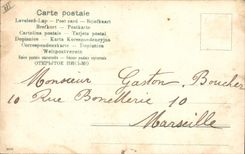 Carte postale
Levelező-Lap — Post card — Briefkaart
Brefkort — Postkarte
Cartolina postale — Tarjeta postal
Dopisnice — Karta Korespondencyjna
Correspondenzkarte — Dopisnica
Weltpostverein
ОТКРЫТОЕ ПИСЬМО
Monsieur Gaston, Boucher
10 Rue Bonneterie 10
Marseille